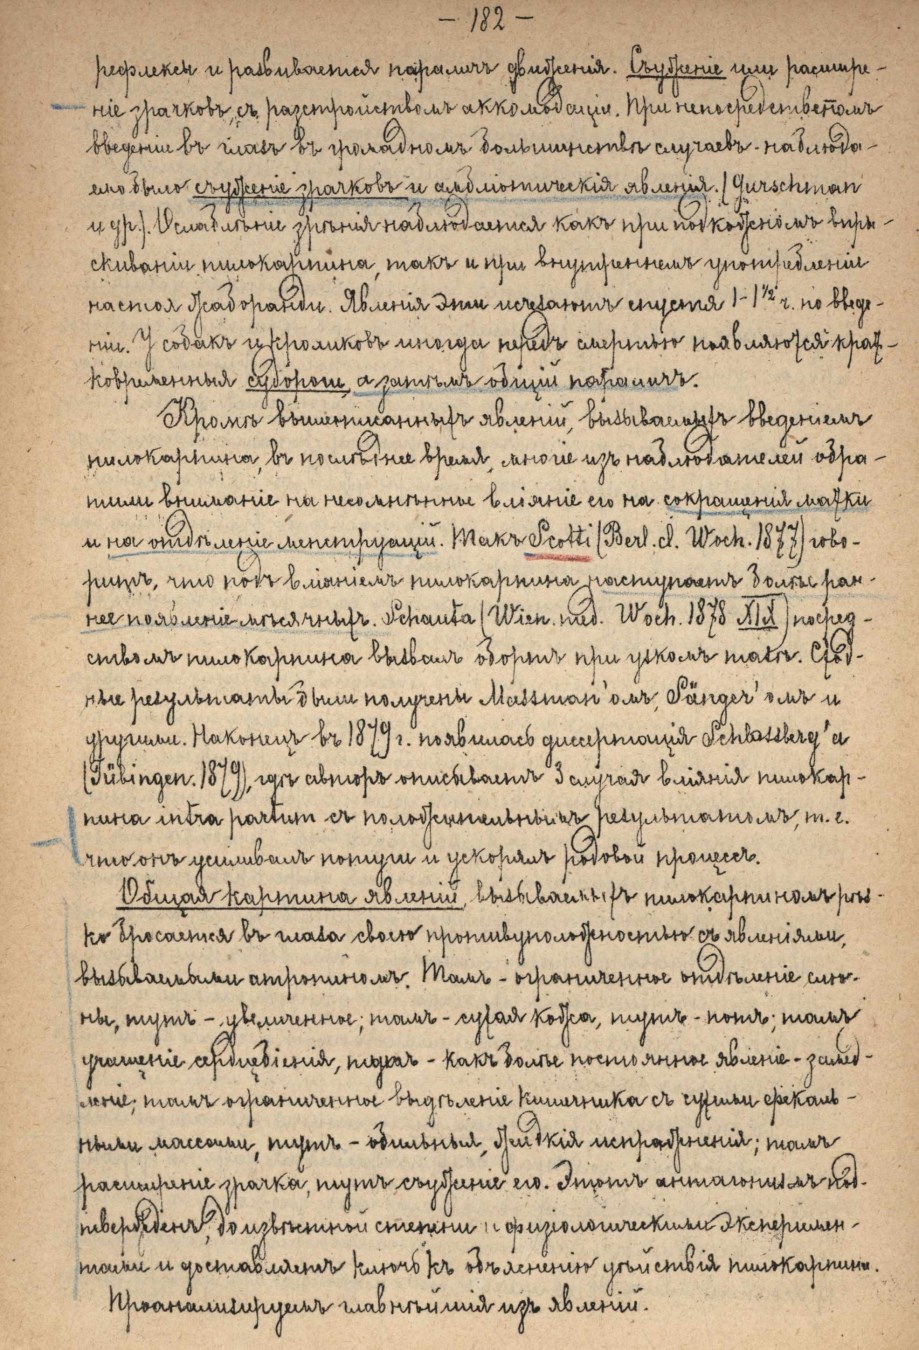 — 182 —
рефлексы и развивается параличъ движенія. Съуженіе или расшире-
ніе зрачковъ, съ разстройствомъ аккомодаціи. При непосредственномъ
введеніи въ глазъ въ громадномъ большинствѣ случаевъ наблюда-
емо было съуженіе зрачковъ и амбліопическія явленія. (Gurschman
и др.). Ослабленіе зрѣнія наблюдается какъ при подкожномъ впры-
скиваніи пилокарпина, такъ и при внутреннемъ употребленіи
настоя жаборанди. Явленія эти исчезаютъ спустя 1–1½ ч. по введе-
ніи. У собакъ и кроликовъ иногда передъ смертью появляются крат-
ковременныя судороги, а затѣмъ общій параличъ.
Кромѣ вышеписанныхъ явленій, вызываемыхъ введеніемъ
пилокарпина, въ послѣднее время, многіе изъ наблюдателей обра-
тили вниманіе на несомнѣнное вліяніе его на сокращенія матки
и на отдѣленіе менструацій. Такъ Scotti (Berl. cl. Woch. 1877) гово-
ритъ, что подъ вліяніемъ пилокарпина наступаетъ болѣе ран-
нее появленіе мѣсячныхъ. Schauta (Wien. med. Woch. 1878 XIX) посред-
ствомъ пилокарпина вызвалъ абортъ при узкомъ тазѣ. Сход-
ные результаты были получены Massman'омъ, Sänger'омъ и
другими. Наконецъ въ 1879 г. появилась диссертація Schlossberg'а
(Tübingen. 1879), гдѣ авторъ описываетъ 3 случая вліянія пилокар-
пина intra partum съ положительнымъ результатомъ, т. е.
что онъ усиливалъ потуги и ускорялъ родовой процессъ.
Общая картина явленій, вызываемыхъ пилокарпиномъ рѣз-
ко бросается въ глаза своею противуположностью съ явленіями,
вызываемыми атропиномъ. Тамъ – ограниченное отдѣленіе слю-
ны, тутъ – увеличенное; тамъ – сухая кожа, тутъ – потъ; тамъ
учащеніе сердцебіенія, тутъ – какъ болѣе постоянное явленіе – замед-
леніе; тамъ ограниченное выдѣленіе кишечника съ сухими фекаль-
ными массами, тутъ – обильныя, жидкія испражненія; тамъ
расширеніе зрачка, тутъ съуженіе его. Этотъ антагонизмъ под-
твержденъ, до извѣстной степени и физіологическими эксперимен-
тами и доставляетъ ключъ къ объясненію дѣйствія пилокарпина.
Проанализируемъ главнѣйшія изъ явленій.